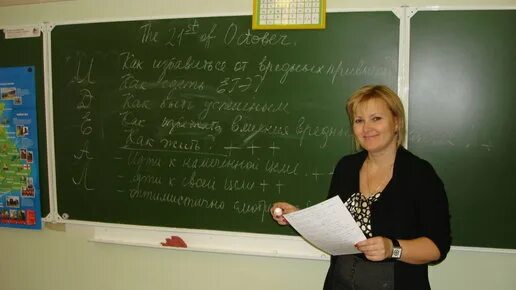 The 21st of October.
И Как избавиться от вредных привычек
Как сдать ЕГЭ?
Д Как быть успешным
Е Как избежать влияния вредных
Как жить? + + +
А - Идти к намеченной цели. + +
Л - идти к своей цели + +
- оптимистично